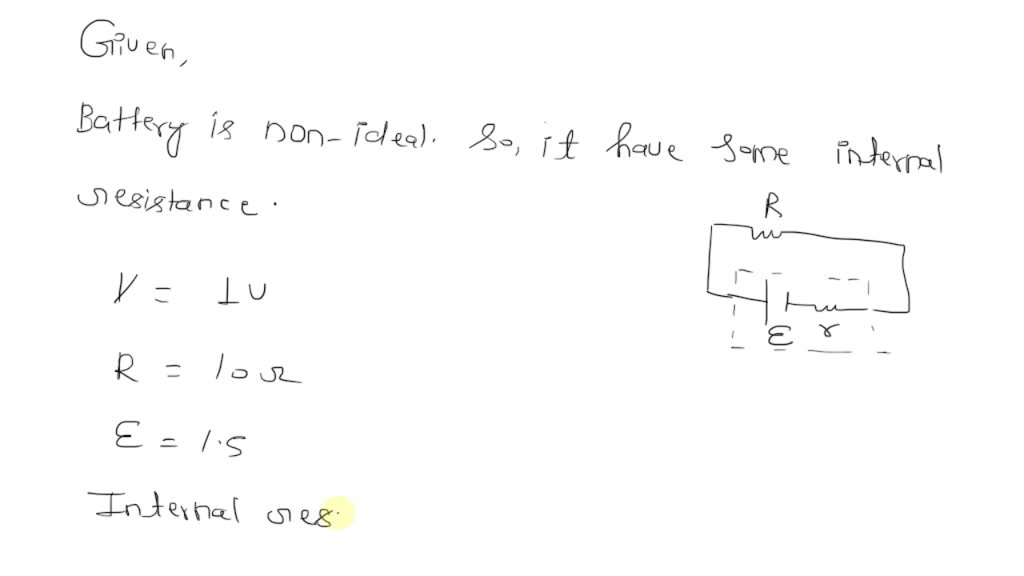 Given,
Battery is non-ideal. So, it have some internal
resistance.
R
V = 1V
ε r
R = 10Ω
ε = 1.5
Internal res.